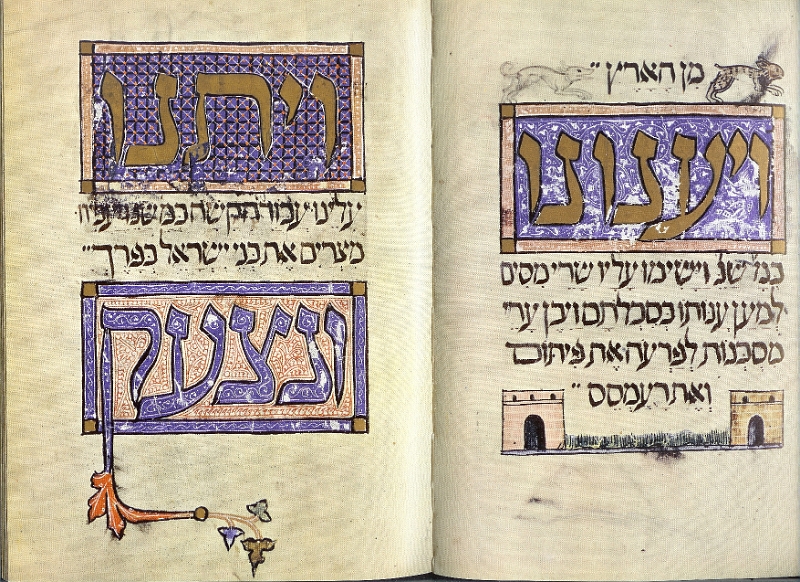 מן הארץ
ויענונו
כמה שנ וישימו עליו שרי מסים
למען ענותו בסבלתם ויבן ערי
מסכנות לפרעה את פיתום
ואת רעמסס
ויתנו
עלינו עבודה קשה כמ שנ
מצרים את בני ישראל בפרך
ונצעק